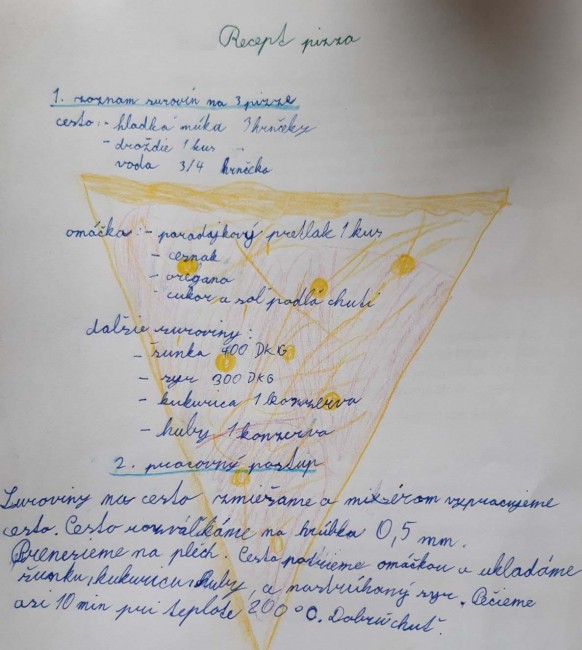 Recept pizza
1. zoznam surovín na 3 pizze
cesto: - hladká múka 3 hrnčeky
- droždie 1 kus
voda 3/4 hrnčeka
omáčka: - paradajkový pretlak 1 kus
- cesnak
- oregano
- cukor a soľ podľa chuti
dalšie suroviny:
- šunka 400 DKG
- syr 300 DKG
- kukurica 1 konzerva
- huby 1 konzerva
2. pracovný postup
Suroviny na cesto zmiešame a mixérom vypracujeme
cesto. Cesto rozvaľkáme na hrúbka 0,5 mm.
Prenesieme na plech. Cesto potrieme omáčkou a ukladáme
šunku, kukuricu, huby, a nastrúhaný syr. Pečieme
asi 10 min pri teplote 200°C. Dobrú chuť.